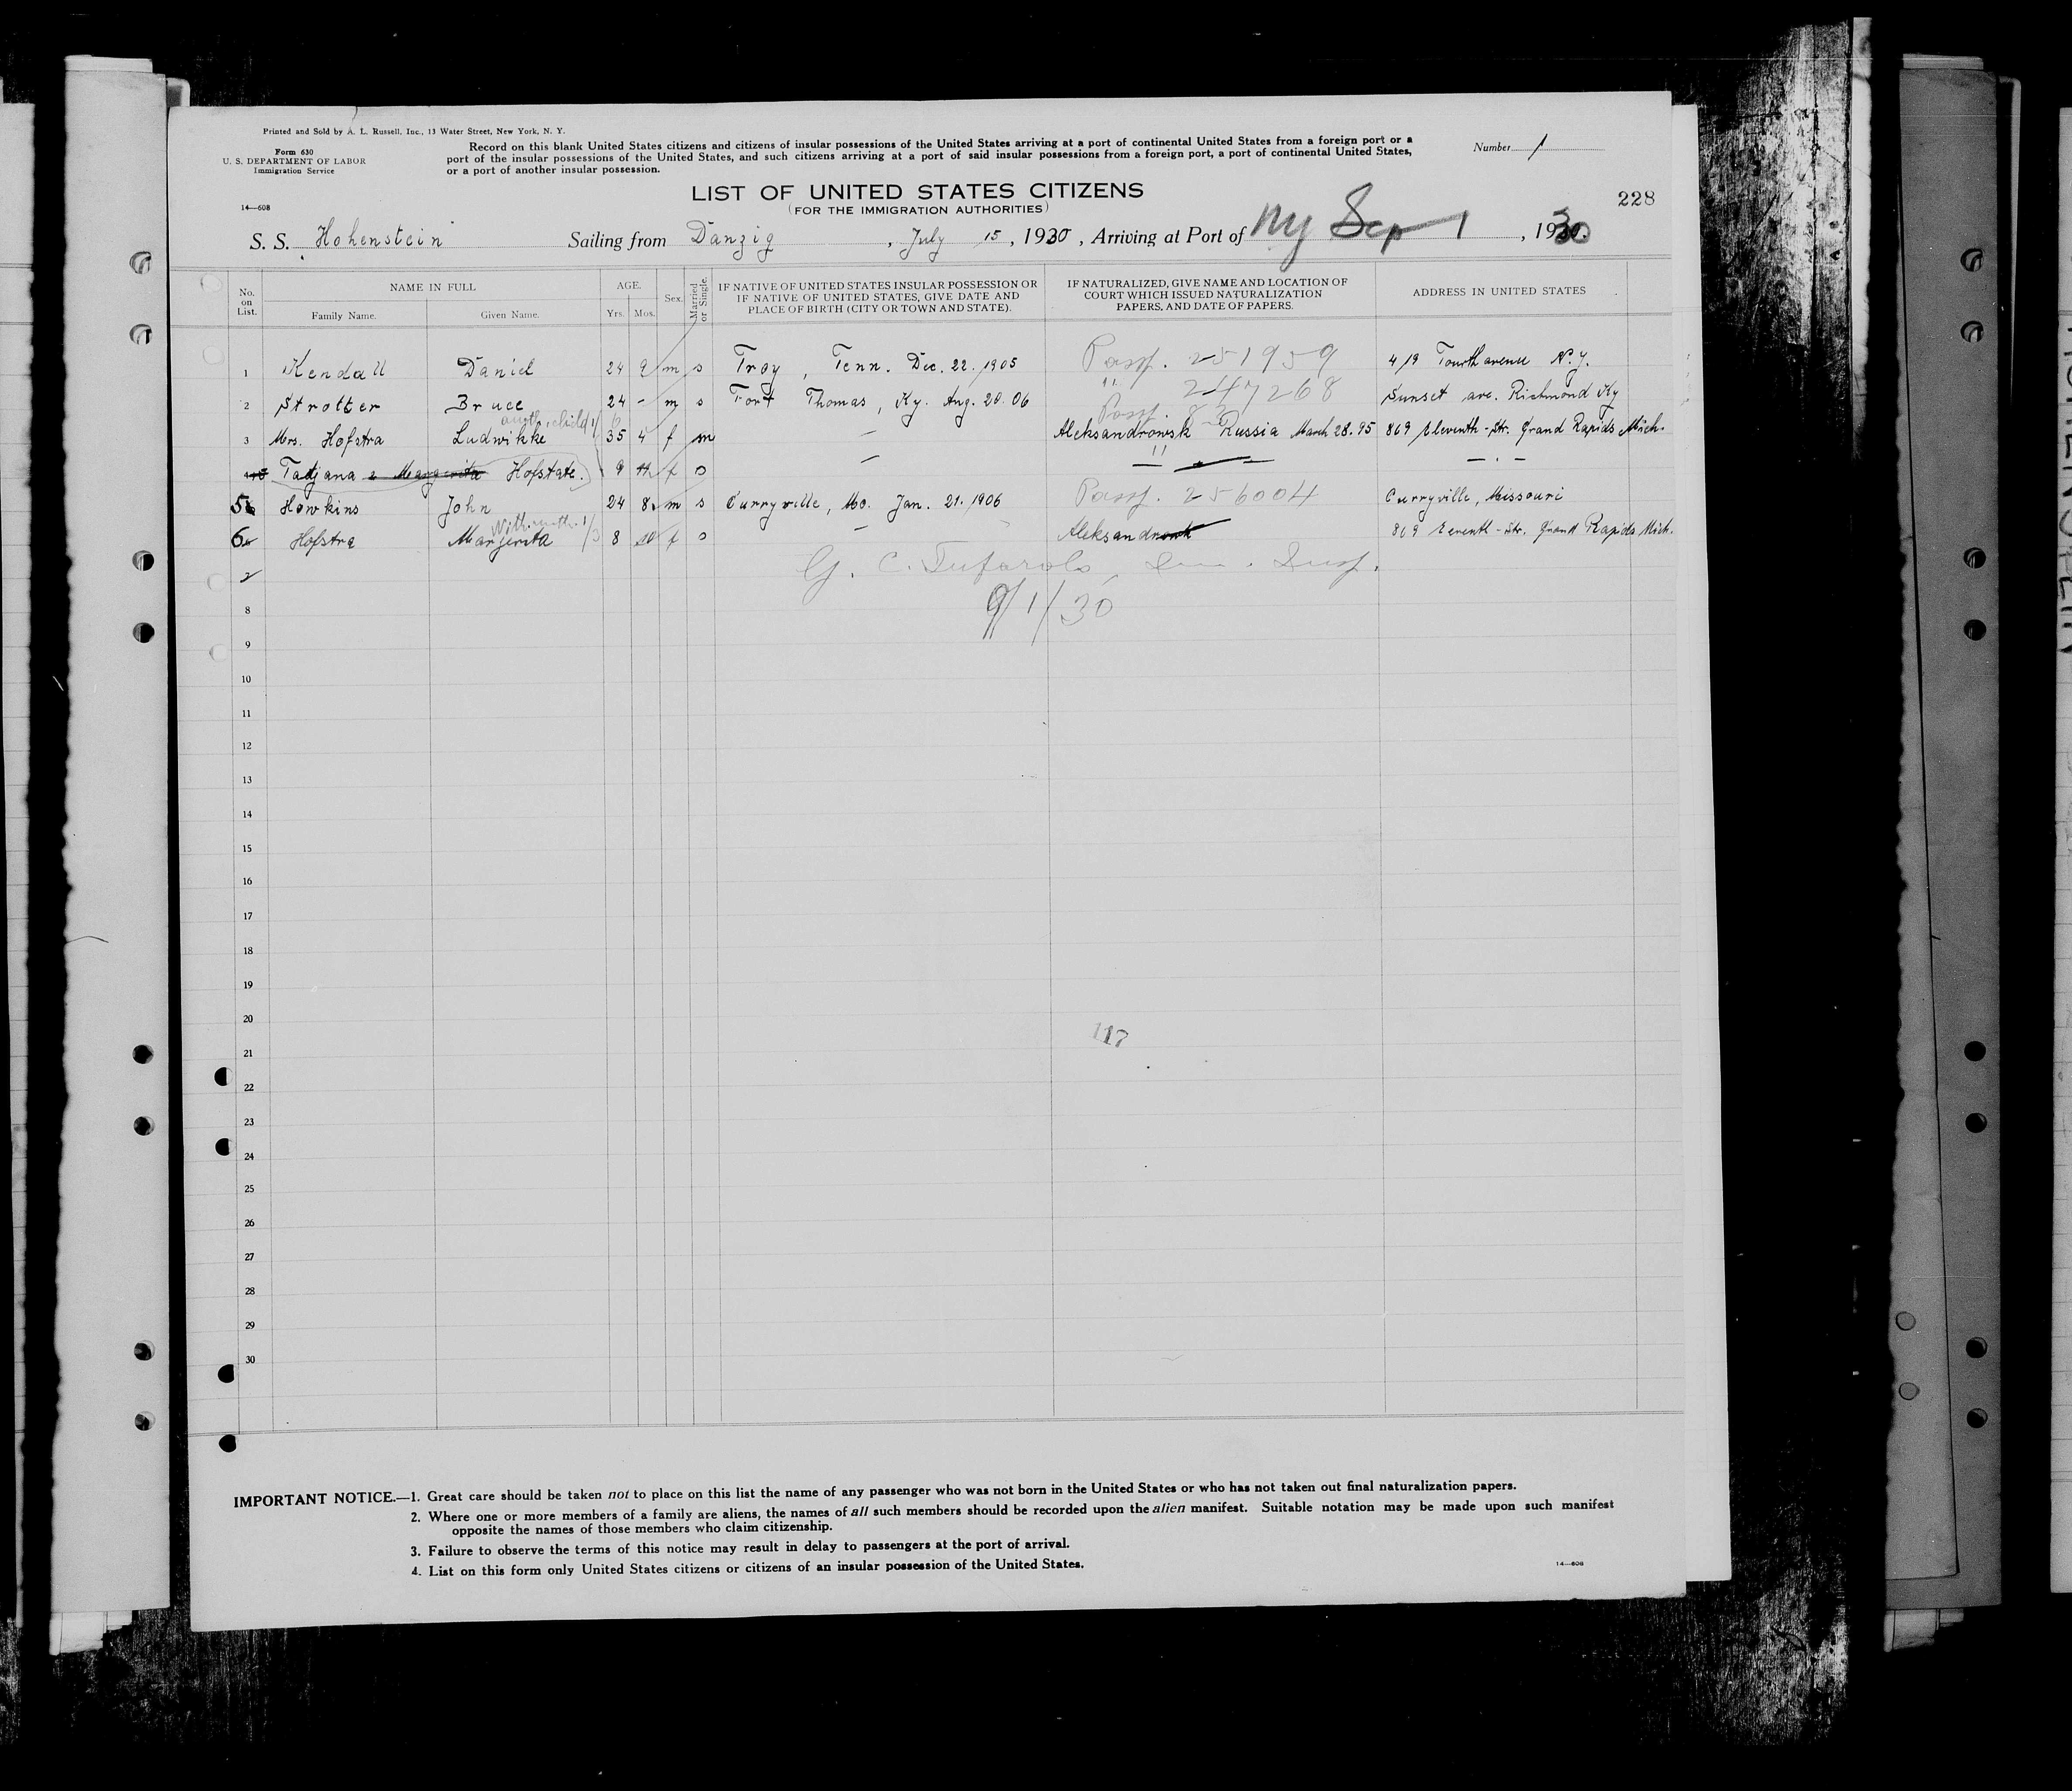 Printed and Sold by A. L. Russell, Inc., 13 Water Street, New York, N. Y.
Form 630
U. S. DEPARTMENT OF LABOR
Immigration Service
Record on this blank United States citizens and citizens of insular possessions of the United States arriving at a port of continental United States from a foreign port or a
port of the insular possessions of the United States, and such citizens arriving at a port of said insular possessions from a foreign port, a port of continental United States,
or a port of another insular possession.
Number 1
LIST OF UNITED STATES CITIZENS
(FOR THE IMMIGRATION AUTHORITIES)
228
14—608
S. S. Hohenstein Sailing from Danzig, July 15, 1930, Arriving at Port of NY Sep 1, 1930.
No. on List. NAME IN FULL Family Name. Given Name. AGE. Yrs. Mos. Sex. Married or Single. IF NATIVE OF UNITED STATES INSULAR POSSESSION OR IF NATIVE OF UNITED STATES, GIVE DATE AND PLACE OF BIRTH (CITY OR TOWN AND STATE). IF NATURALIZED, GIVE NAME AND LOCATION OF COURT WHICH ISSUED NATURALIZATION PAPERS, AND DATE OF PAPERS. ADDRESS IN UNITED STATES
1 Kendall Daniel 24 9 m s Troy, Tenn. Dec. 22. 1905 Passp. 251959 419 Fourth avenue N.Y.
2 Strotter Bruce 24 - m s Fort Thomas, Ky. Aug. 20. 06 " 247268 Sunset ave. Richmond Ky
3 Mrs. Hofstra Ludwikke 35 4 f m — Aleksandrowsk Russia March 28. 95 869 Eleventh-Str. Grand Rapids Mich.
Tatjana & Margerita Hofstate. 9 f s — " — - . -
5 Howkins John 24 8 m s Curryville, Mo. Jan. 21. 1906 Passp. 256004 Curryville, Missouri
6 Hofstra Margerita 8 10 f s — Aleksandrowsk 869 Eeventh-Str. Grand Rapids Mich.
With moth.
G. C. Tufarolo, Imm. Insp.
9/1/30
7
8
9
10
11
12
13
14
15
16
17
18
19
20
117
21
22
23
24
25
26
27
28
29
30
IMPORTANT NOTICE.—1. Great care should be taken not to place on this list the name of any passenger who was not born in the United States or who has not taken out final naturalization papers.
2. Where one or more members of a family are aliens, the names of all such members should be recorded upon the alien manifest. Suitable notation may be made upon such manifest
opposite the names of those members who claim citizenship.
3. Failure to observe the terms of this notice may result in delay to passengers at the port of arrival.
4. List on this form only United States citizens or citizens of an insular possession of the United States.
14—608